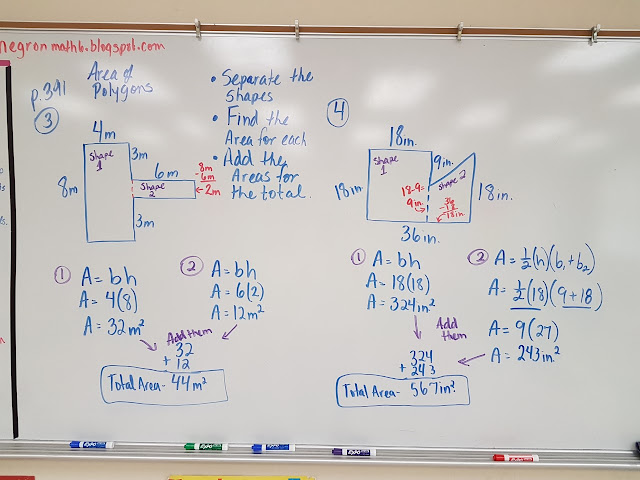 negron math6.blogspot.com
p.391
Area of
Polygons
• Separate the
Shapes
• Find the
Area for each
• Add the
Areas for
the total.
③
4m
Shape
1
3m
8m
6m
Shape
2
8m
-6m
2m
3m
① A = bh
A = 4(8)
A = 32m²
② A = bh
A = 6(2)
A = 12m²
Add them
32
+ 12
Total Area - 44m²
④
18in.
Shape
1
9in.
18in.
18-9=
9in.
Shape 2
36
-18
18in
18in.
36in.
① A = bh
A = 18(18)
A = 324in²
② A = ½(h)(b₁+b₂)
A = ½(18)(9+18)
A = 9(27)
A = 243in²
Add
them
324
+ 243
Total Area - 567in²
EXPO
EXPO
EXPO
EXPO
EXPO